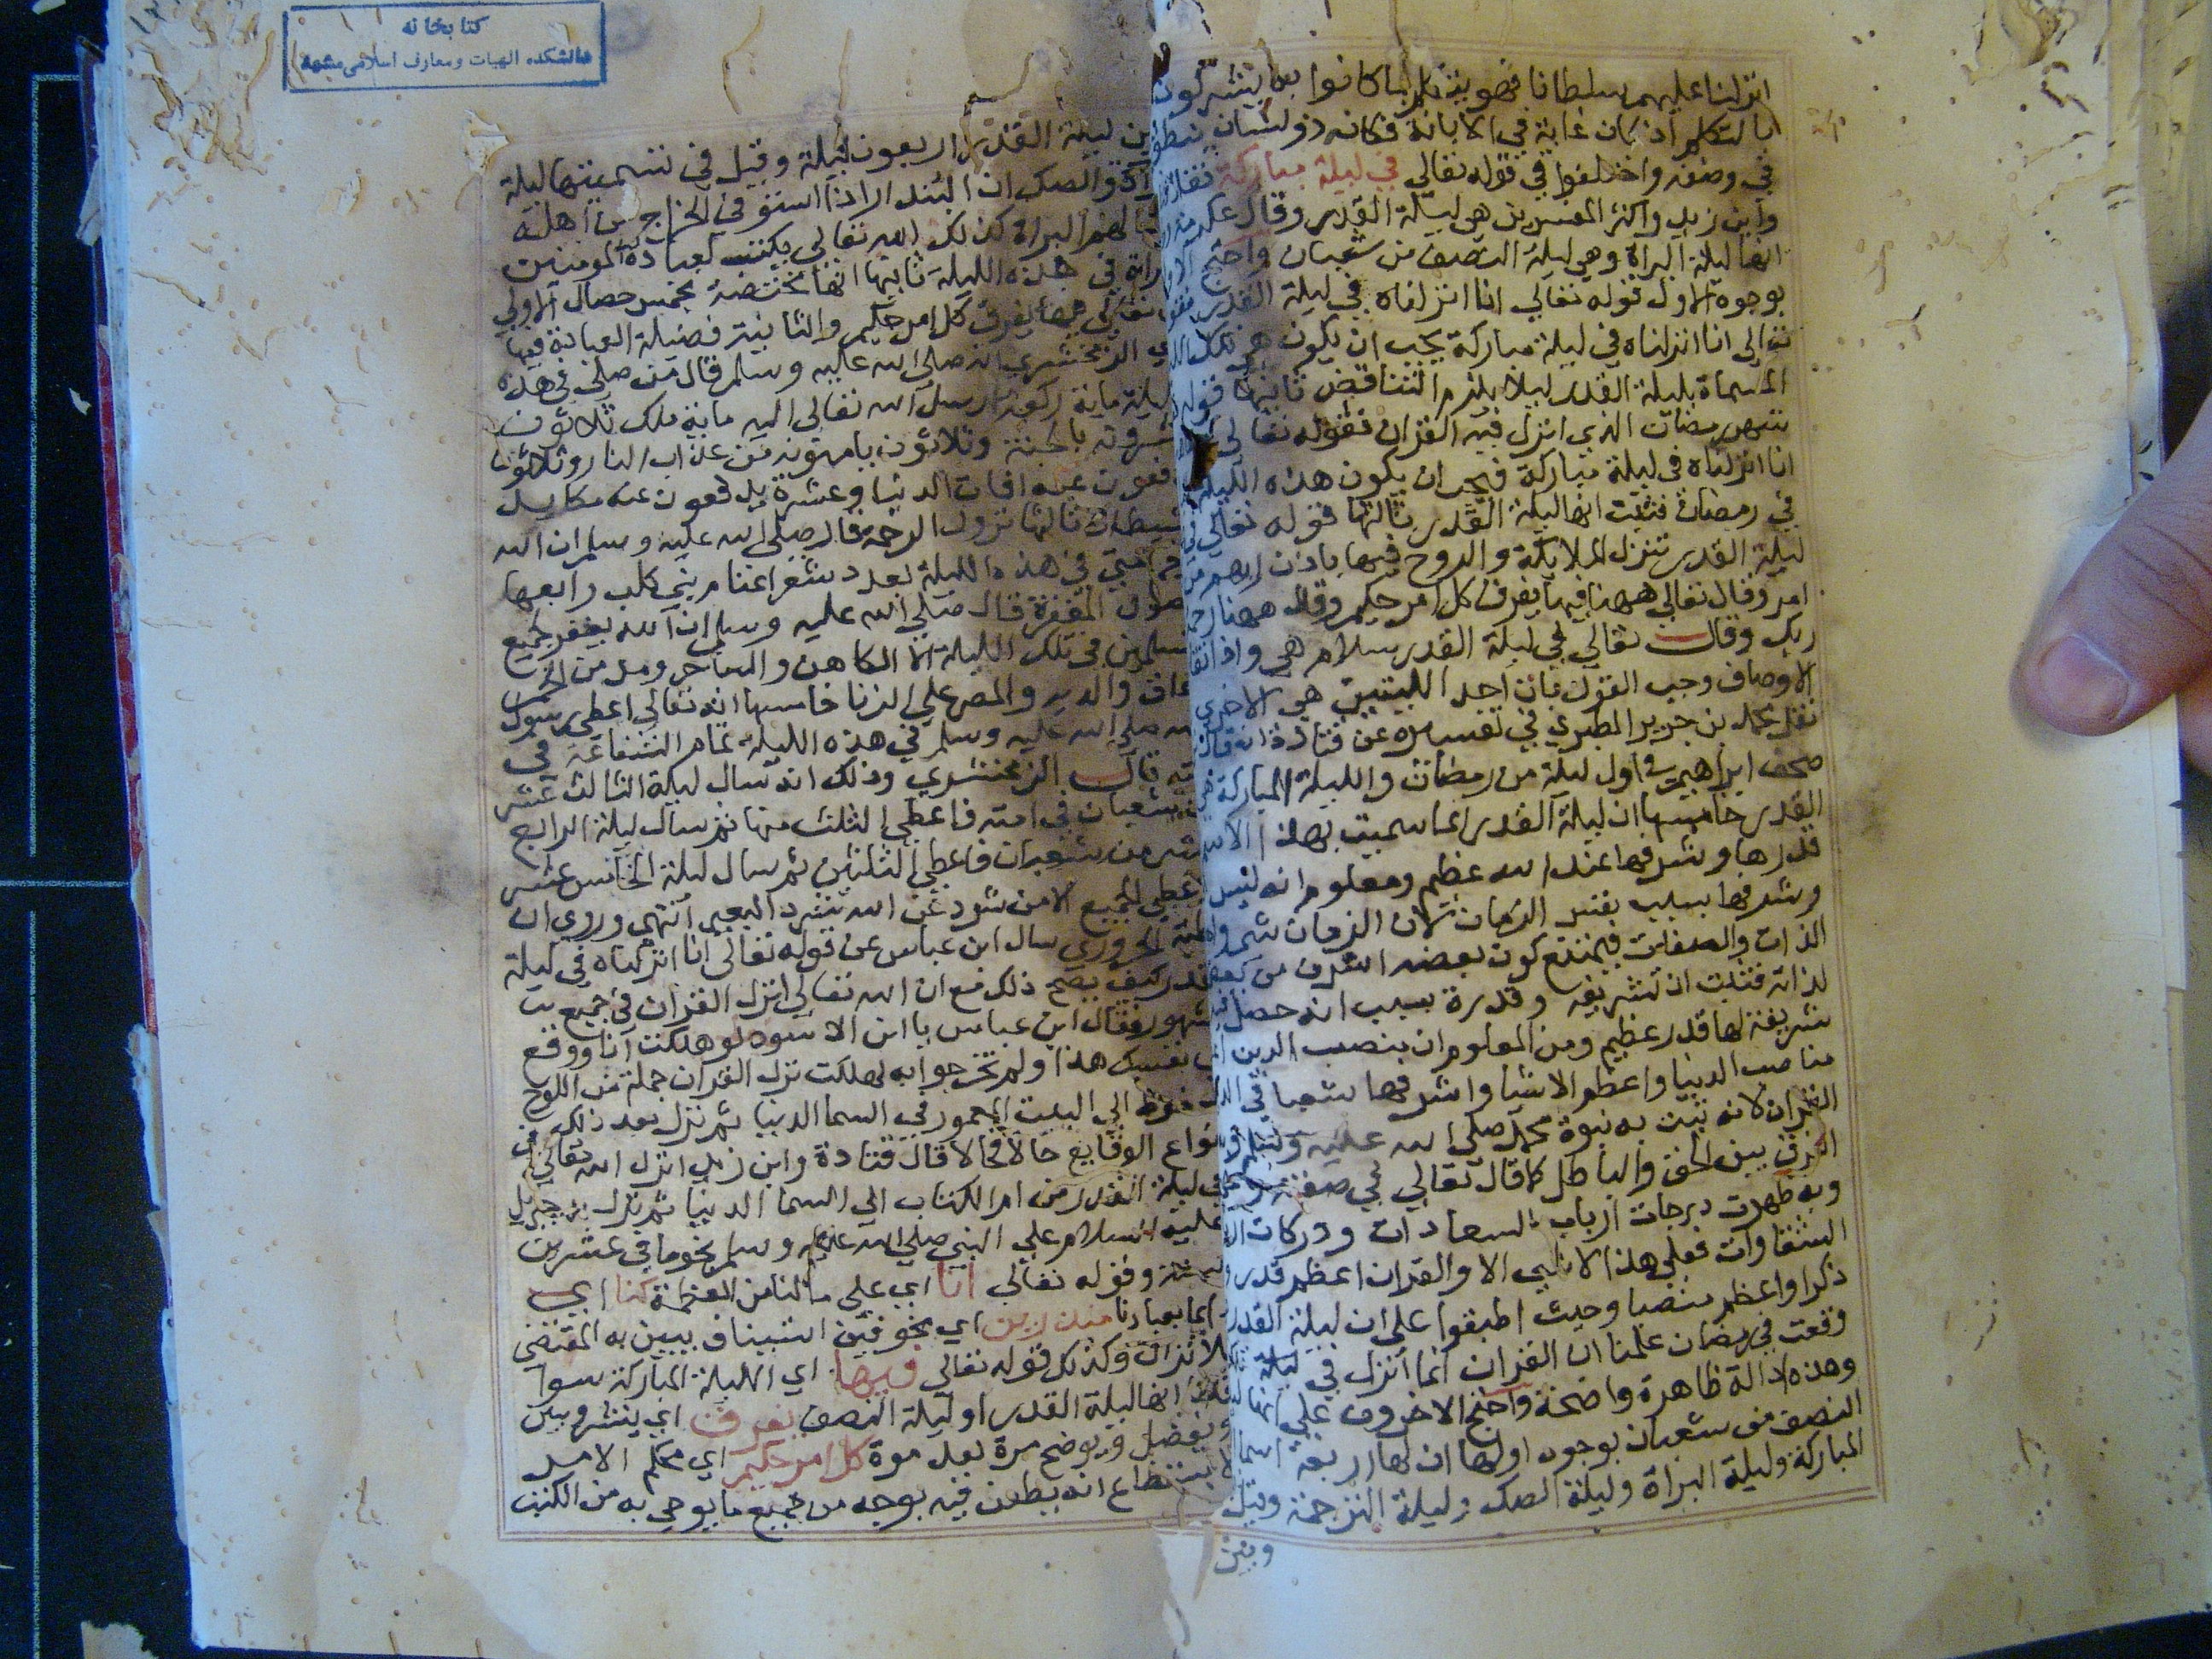 انزلنا عليهم سلطانا فهو يتكلم بما كانوا به يشركون
بالتكلم اذ كان غاية في الابانة فكانه ذو لسان ينطق
في وصفه واختلفوا في قوله تعالي في ليلة مباركة فقال
وابن زيد واكثر المفسرين هي ليلة القدر وقال عكرمة
انها ليلة البراة وهي ليلة النصف من شعبان واحتج
بوجوه الاول قوله تعالي انا انزلناه في ليلة القدر
تعالى انا انزلناه في ليلة مباركة يجب ان يكون هي تلك
المسماة بليلة القدر ليلا يلزم التناقض ثانيها قوله
شهر رمضان الذي انزل فيه القران فقوله تعالى
انا انزلناه في ليلة مباركة فيجب ان يكون هذه الليلة
في رمضان فثبت انها ليلة القدر ثالثها قوله تعالي
ليلة القدر تنزل الملايكة والروح فيها باذن ربهم من
امر وقال تعالي ههنا فيها يفرق كل امر حكيم وقال ههنا رحمة
ربك وقال تعالي في ليلة القدر سلام هي واذا
الاوصاف وجب القول بان احد الليلتين هي الاخرى
نقل محمد بن جرير الطبري في تفسيره عن قتادة انه قال
صحف ابراهيم في اول ليلة من رمضان والليلة المباركة
القدر خامسها ان ليلة القدر انما سميت بهذا
قدرها وشرفها عند الله عظيم ومعلوم انه ليس
وشرفها بسبب نفس الزمان لان الزمان شي
الذات والصفات فيمتنع كون بعضه اشرف من
لذاته فثبت ان تشريفه وقدره بسبب انه حصل
شريفة لها قدر عظيم ومن المعلوم ان منصب الدين
مناصب الدنيا واعظم الاشيا واشرفها منصبا في
القران لانه ثبت به نبوة محمد صلى الله عليه وسلم
الفرق بين الحق والباطل كما قال تعالي في صفته
وبه ظهرت درجات ارباب السعادات ودركات
الشقاوات فعلي هذا لا شي الا والقران اعظم قدرا
ذكرا واعظم منصبا وحيث اطبقوا على ان ليلة القدر
وقعت في رمضان علمنا ان القران انما انزل في ليلة
وهذه ادلة ظاهرة واضحة واحتج الاخرون علي انها
النصف من شعبان بوجوه اولها ان لها اربعة اسما
المباركة وليلة البراة وليلة الصك وليلة الرحمة وقيل
وبين
كتابخانه
دانشكده الهيات ومعارف اسلامى مشهد
ليلة القدر اربعون ليلة وقيل في تسميتها ليلة
والصك ان البندار اذا استوفي الخراج من اهله
لهم البراة كذلك الله تعالى يكتب لعباده المومنين
في هذه الليلة ثانيها انها مختصة بخمس خصال الاولي
تعالى فيها يفرق كل امر حكيم والثانية فضيلة العبادة فيها
الزمخشري انه صلى الله عليه وسلم قال من صلى في هذه
الليلة ماية ركعة ارسل الله تعالى اليه ماية ملك ثلاثون
يبشرونه بالجنة وثلاثون يامنونه من عذاب النار وثلاثون
يدفعون عنه افات الدنيا وعشرة يدفعون عنه مكايد
الشيطان ثالثها نزول الرحمة قال صلى الله عليه وسلم ان الله
امتي في هذه الليلة بعدد شعر اغنام بني كلب رابعها
حصول المغفرة قال صلى الله عليه وسلم ان الله يغفر لجميع
المسلمين في تلك الليلة الا الكاهن والساحر ومدمن الخمر
وعاق والديه والمصر على الزنا خامسها انه تعالى اعطي رسول
الله صلى الله عليه وسلم في هذه الليلة تمام الشفاعة في
امته قال الزمخشري وذلك انه سال ليلة الثالث عشر
من شعبان في امته فاعطي الثلث منها ثم سال ليلة الرابع
عشر من شعبان فاعطي الثلثين ثم سال ليلة الخامس عشر
فاعطي الجميع الا من شرد عن الله شرد البعير انتهى وروي ان
الحروري سال ابن عباس عن قوله تعالى انا انزلناه في ليلة
القدر كيف يصح ذلك مع ان الله تعالى انزل القران في جميع
الشهور فقال ابن عباس يا ابن الاسود لو هلكت انا ووقع
في نفسك هذا ولم تجد جوابه لهلكت نزل القران جملة من اللوح
المحفوظ الى البيت المعمور في السما الدنيا ثم نزل بعد ذلك في
انواع الوقايع حالا فحالا قال قتادة وابن زيد انزل الله تعالى
في ليلة القدر من ام الكتاب الي السما الدنيا ثم نزل به جبريل
عليه السلام علي النبي صلى الله عليه وسلم نجوما في عشرين
سنة وقوله تعالي انا اي على مالنا من العظمة كنا اي
دايما بعبادنا منذرين اي مخوفين استيناف يبين به المقتضي
للانزال وكذلك قوله تعالى فيها اي الليلة المباركة سوا
قلنا انها ليلة القدر او ليلة النصف يفرق اي ينشر ويبين
ويفصل ويوضح مرة بعد مرة كل امر حكيم اي محكم الامر
لا يستطاع انه يطعن فيه بوجه من جميع ما يوحي به من الكتب